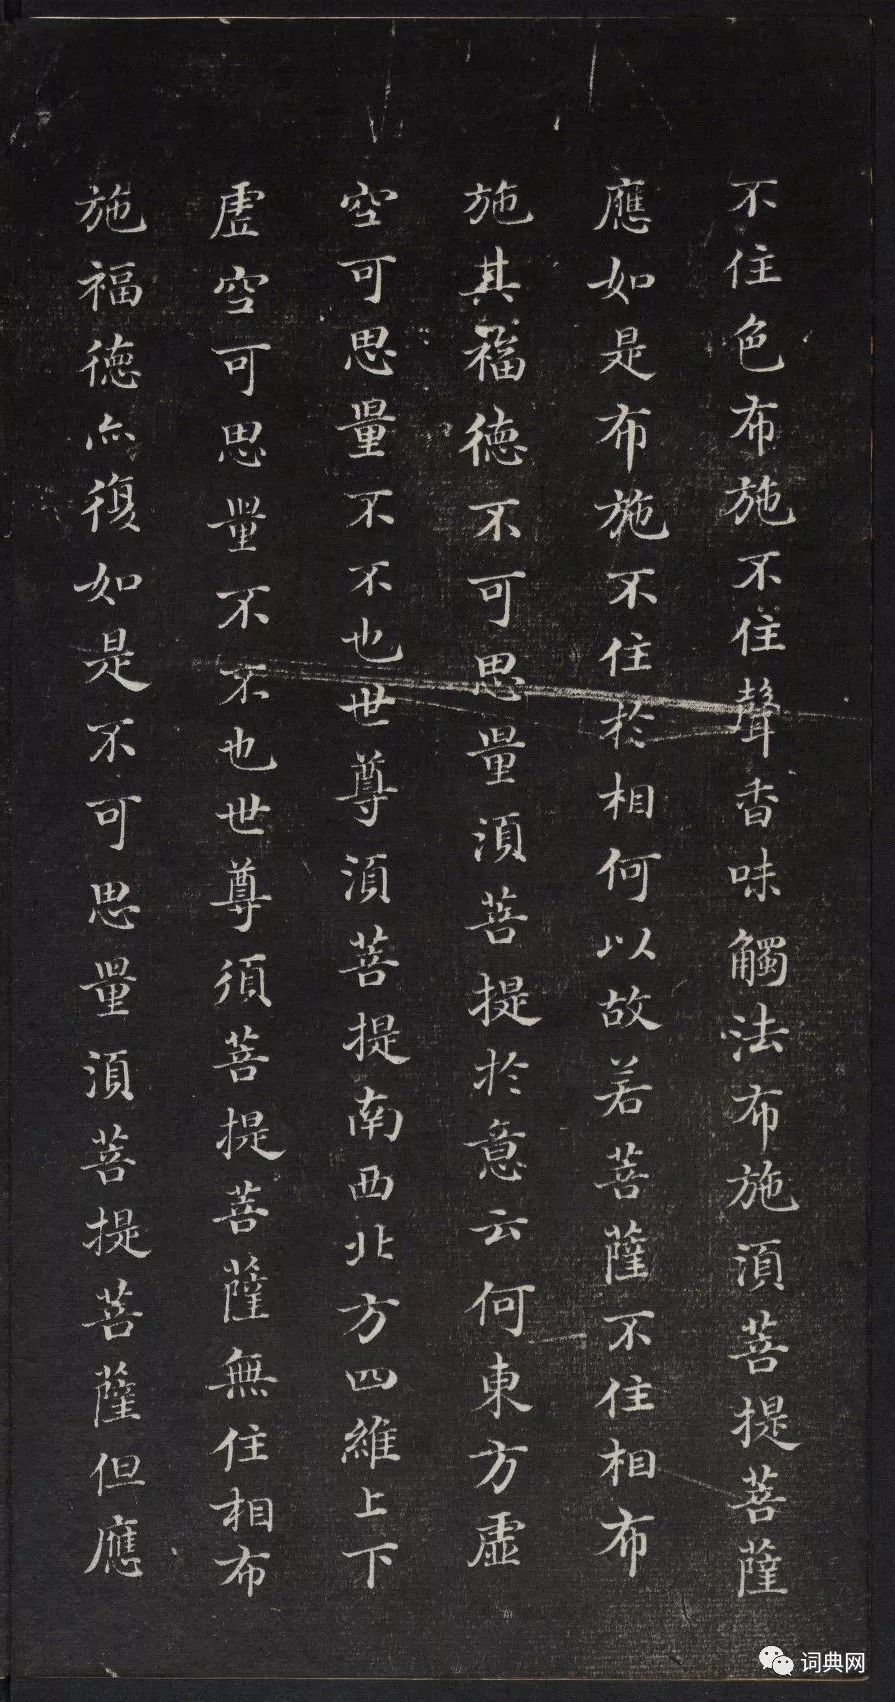 不住色布施不住聲香味觸法布施須菩提菩薩
應如是布施不住於相何以故若菩薩不住相布
施其福德不可思量須菩提於意云何東方虛
空可思量不不也世尊須菩提南西北方四維上下
虛空可思量不不也世尊須菩提菩薩無住相布
施福德亦復如是不可思量須菩提菩薩但應
词典网